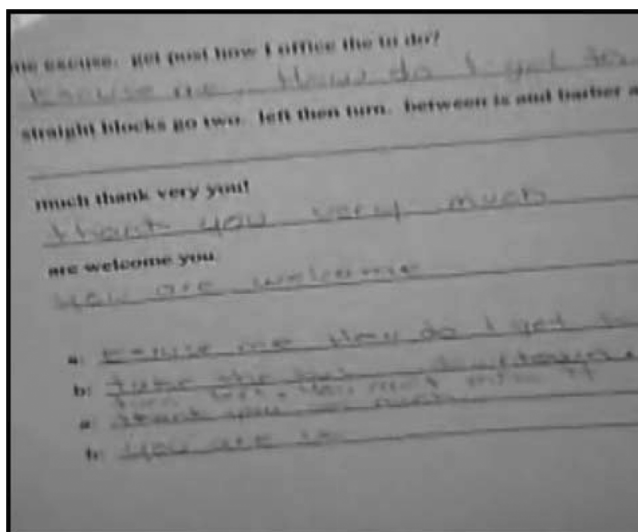 me excuse. get post how I office the to do?
Excuse me, How do I get to
straight blocks go two. left then turn. between is and barber
much thank very you!
thank you very much
are welcome you.
you are welcome
a: Excuse me How do I get to
b: take the
a: thank you much
b: you are